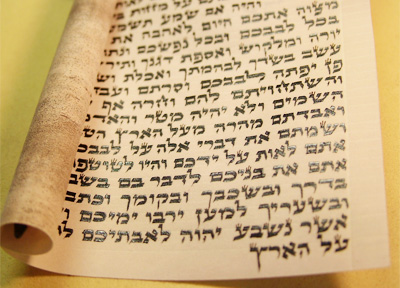 על מזזות
והיה אם שמע
מצוה אתכם היום לאהבה את
בכל לבבכם ובכל נפשכם
יורה ומלקוש ואספת דגנך
עשב בשדך לבהמתך ואכלת
פן יפתה לבבכם וסרתם
והשתחויתם להם וחרה אף
השמים ולא יהיה מטר
ואבדתם מהרה מעל הארץ
ושמתם את דברי אלה על
אתם לאות על ידכם והיו לטוטפת
אתם את בניכם לדבר בם
בדרך ובשכבך ובקומך
ובשעריך למען ירבו ימיכם
אשר נשבע יהוה לאבתיכם
על הארץ